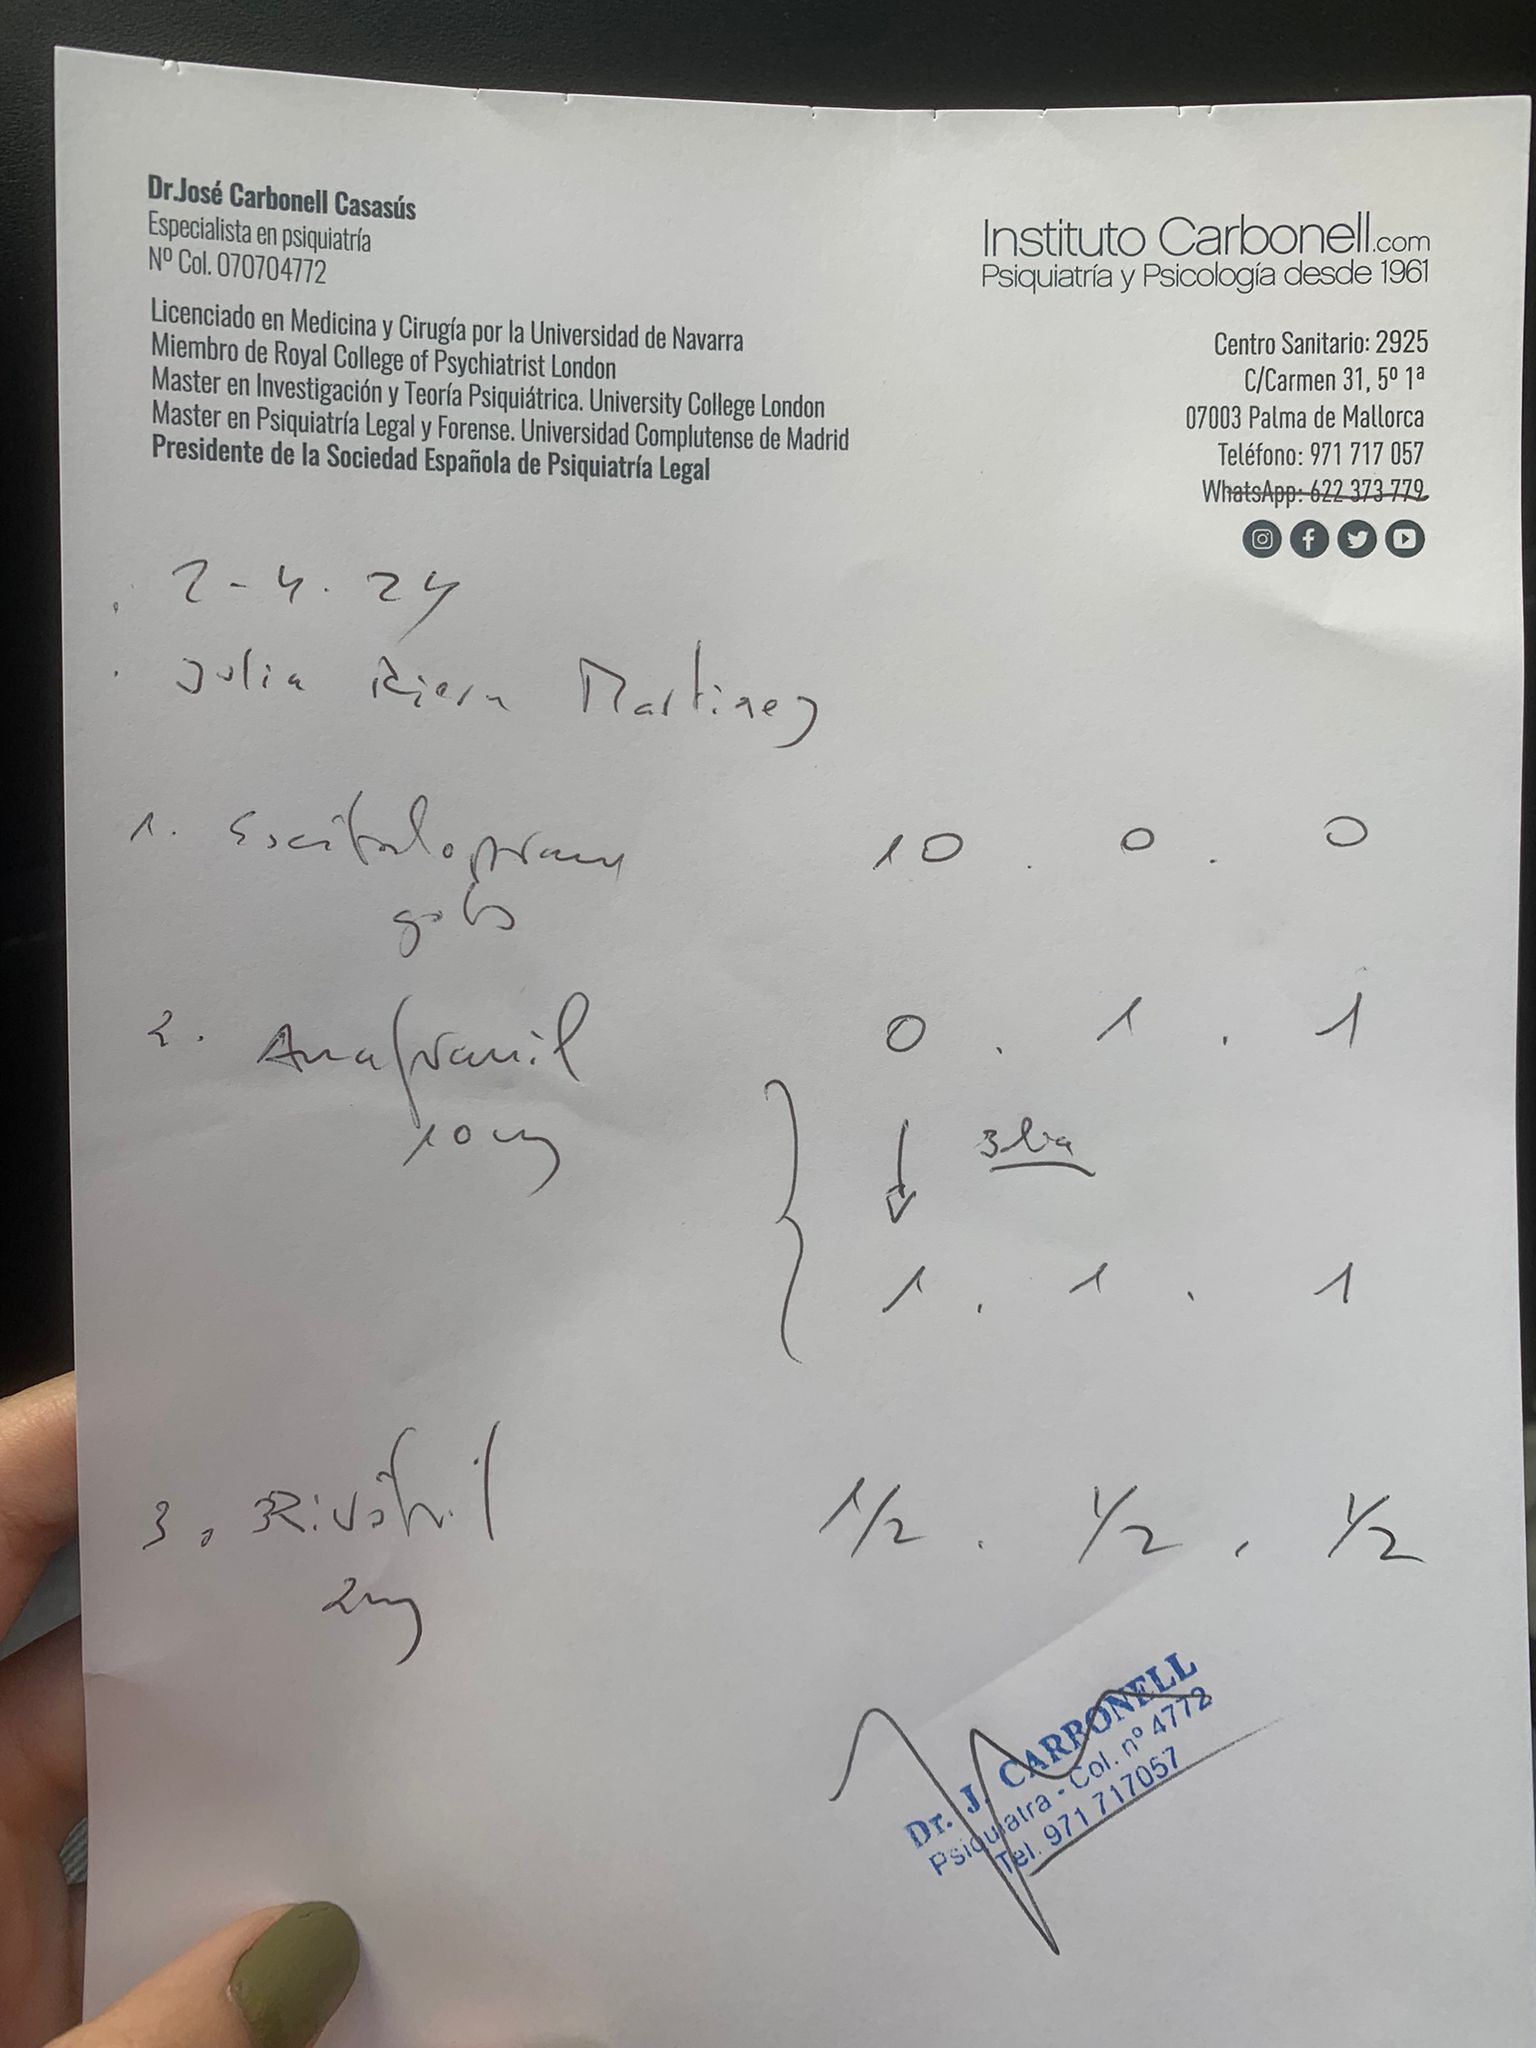 Dr.José Carbonell Casasús
Especialista en psiquiatría
Nº Col. 070704772
Licenciado en Medicina y Cirugía por la Universidad de Navarra
Miembro de Royal College of Psychiatrist London
Master en Investigación y Teoría Psiquiátrica. University College London
Master en Psiquiatría Legal y Forense. Universidad Complutense de Madrid
Presidente de la Sociedad Española de Psiquiatría Legal
Instituto Carbonell.com
Psiquiatría y Psicología desde 1961
Centro Sanitario: 2925
C/Carmen 31, 5º 1ª
07003 Palma de Mallorca
Teléfono: 971 717 057
WhatsApp: 622 373 779
. 2-4.24
. Julia Riera Martinez
1. Escitalopram 10 . 0 . 0
gotas
2. Anafranil 0 . 1 . 1
10 mg
1 . 1 . 1
3. Rivotril 1/2 . 1/2 . 1/2
2mg
Dr. J. CARBONELL
Psiquiatra - Col. nº 4772
Tel. 971 717057